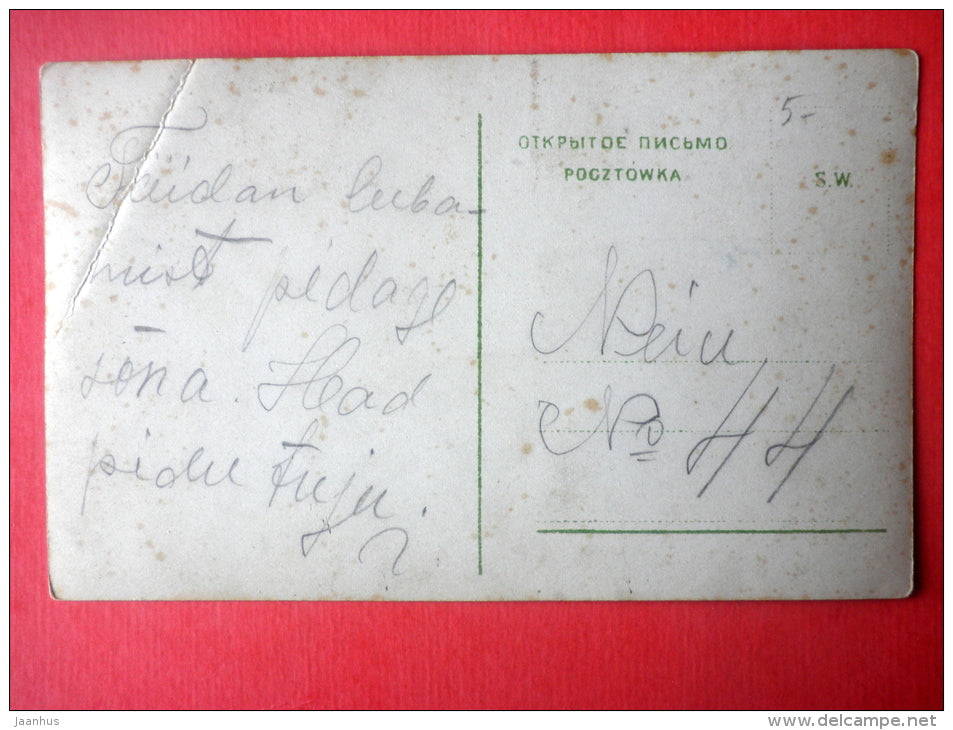 Püüdan luba-
mist pidage
sõna. Head
pidu tuju.
ОТКРЫТОЕ ПИСЬМО
POCZTÓWKA
S.W.
5-
Neiu
No 44
Jaanhus
www.delcampe.net